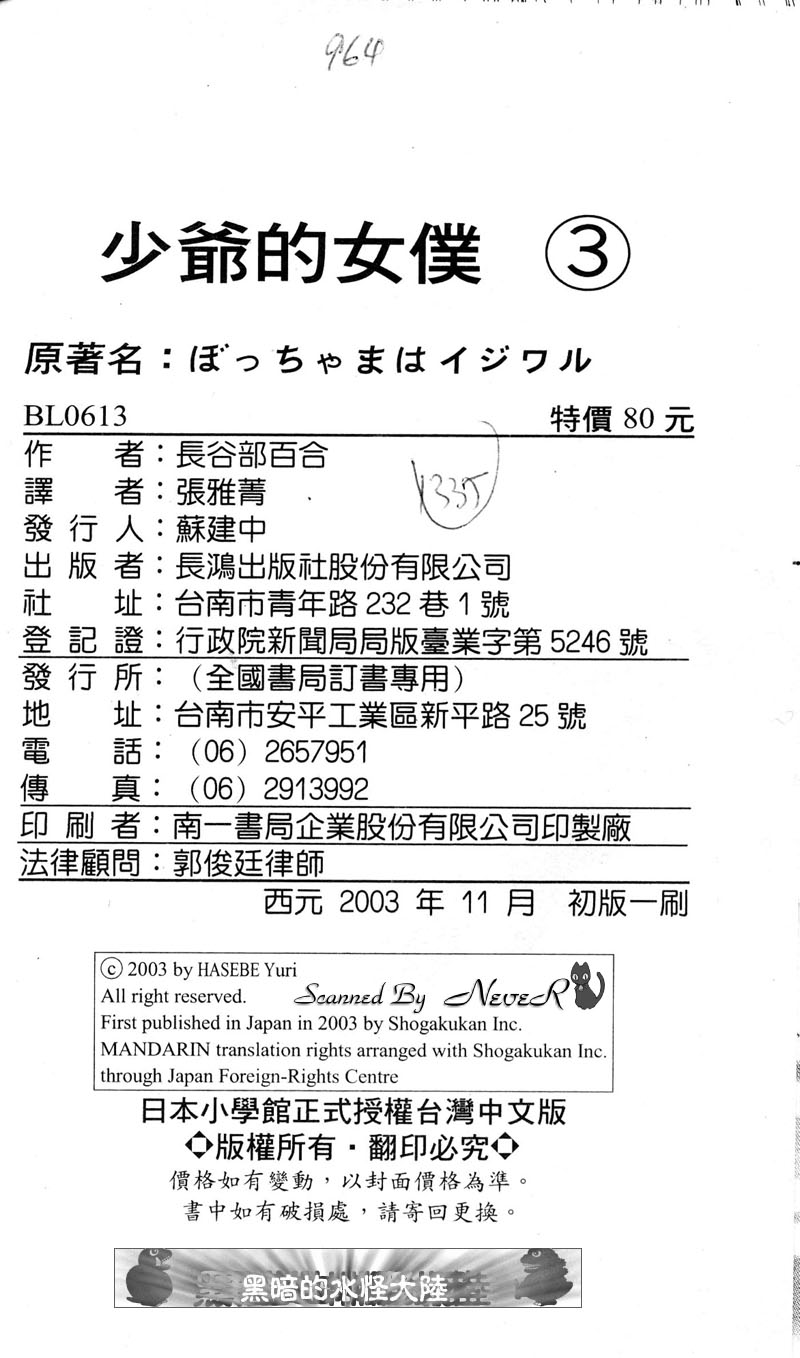 964
少爺的女僕 ③
原著名：ぼっちゃまはイジワル
BL0613 特價 80 元
作者：長谷部百合
譯者：張雅菁
1335
發行人：蘇建中
出版者：長鴻出版社股份有限公司
社址：台南市青年路 232 巷 1 號
登記證：行政院新聞局局版臺業字第 5246 號
發行所：（全國書局訂書專用）
地址：台南市安平工業區新平路 25 號
電話：（06）2657951
傳真：（06）2913992
印刷者：南一書局企業股份有限公司印製廠
法律顧問：郭俊廷律師
西元 2003 年 11 月 初版一刷
ⓒ 2003 by HASEBE Yuri
All right reserved. Scanned By NeveR
First published in Japan in 2003 by Shogakukan Inc.
MANDARIN translation rights arranged with Shogakukan Inc.
through Japan Foreign-Rights Centre
日本小學館正式授權台灣中文版
◇版權所有・翻印必究◇
價格如有變動，以封面價格為準。
書中如有破損處，請寄回更換。
黑暗的水怪大陸